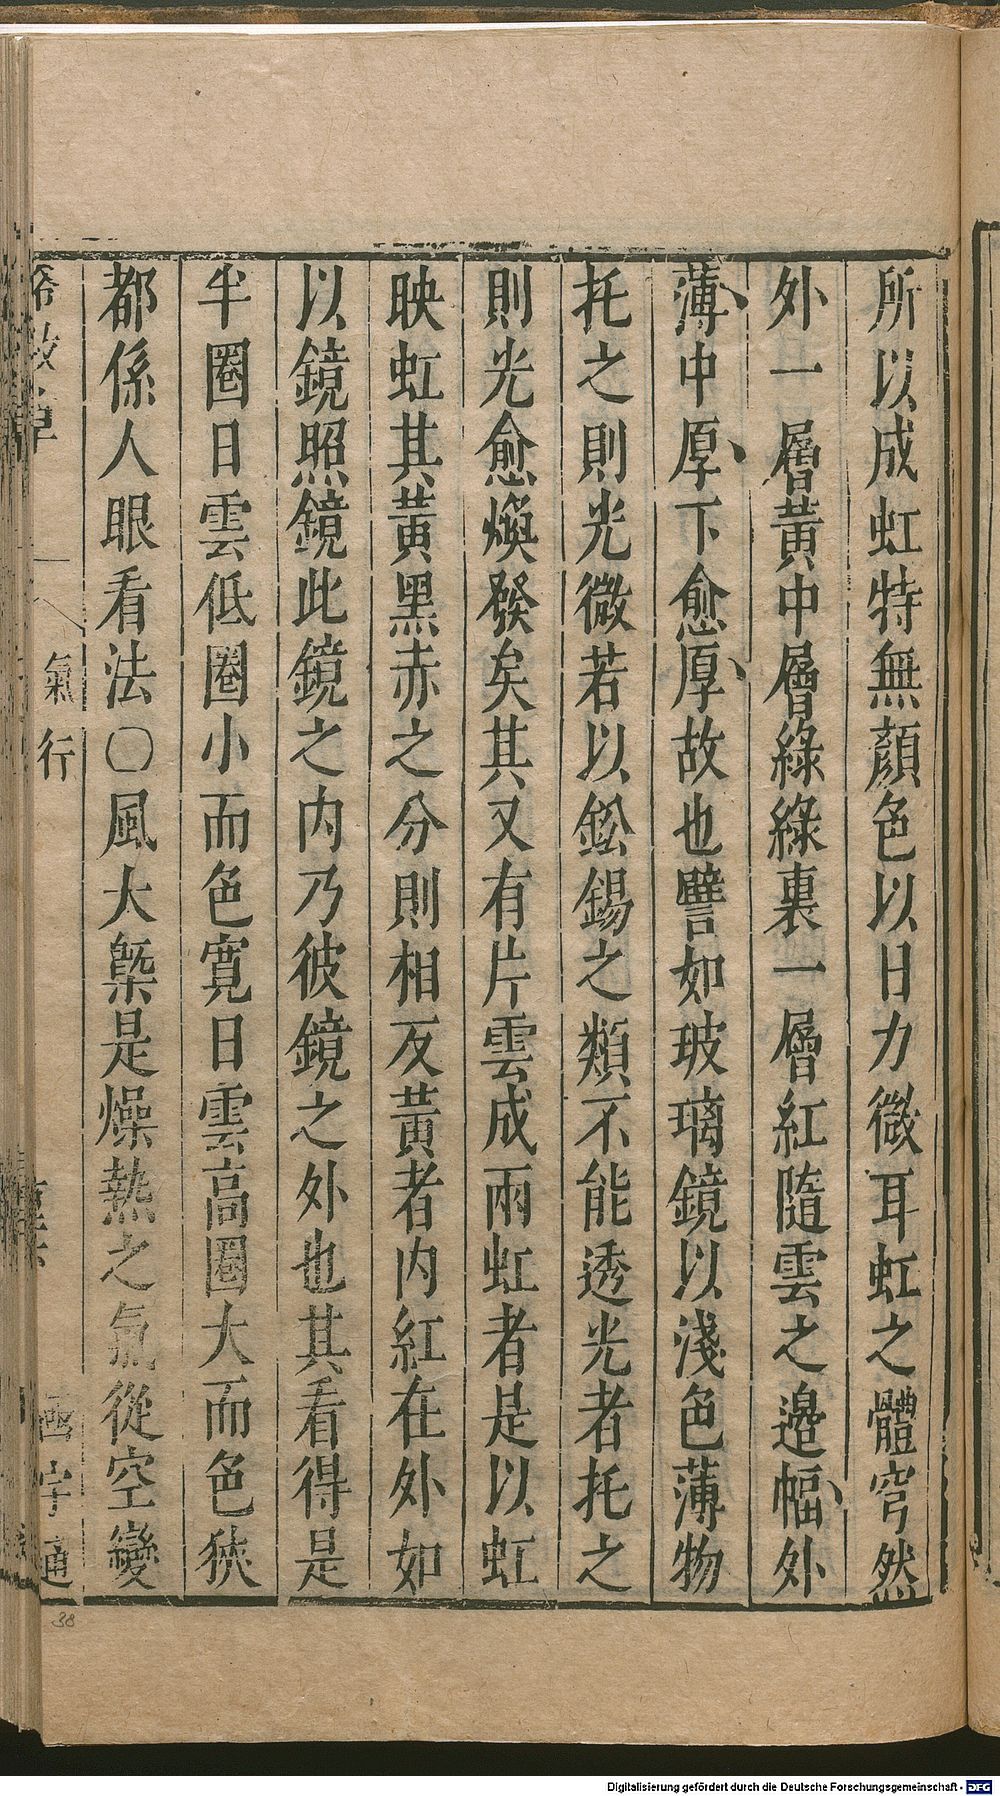 所以成虹特無顏色以日力微耳虹之體穹然
外一層黃中層綠綠裏一層紅隨雲之邉幅外
薄中厚下愈厚故也譬如玻璃鏡以淺色薄物
托之則光微若以鈆錫之類不能透光者托之
則光愈煥發矣其又有片雲成兩虹者是以虹
映虹其黃黑赤之分則相反黃者內紅在外如
以鏡照鏡此鏡之內乃彼鏡之外也其看得是
半圈日雲低圈小而色寬日雲高圈大而色狹
都係人眼看法〇風大槩是燥熱之氣從空變
格致草
氣行
函宇通
38
Digitalisierung gefördert durch die Deutsche Forschungsgemeinschaft - DFG